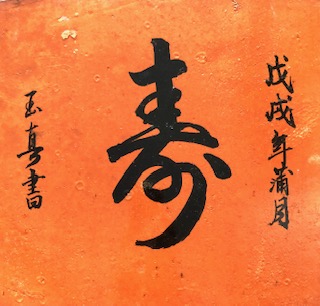 戊戌年蒲月
寿
玉真書